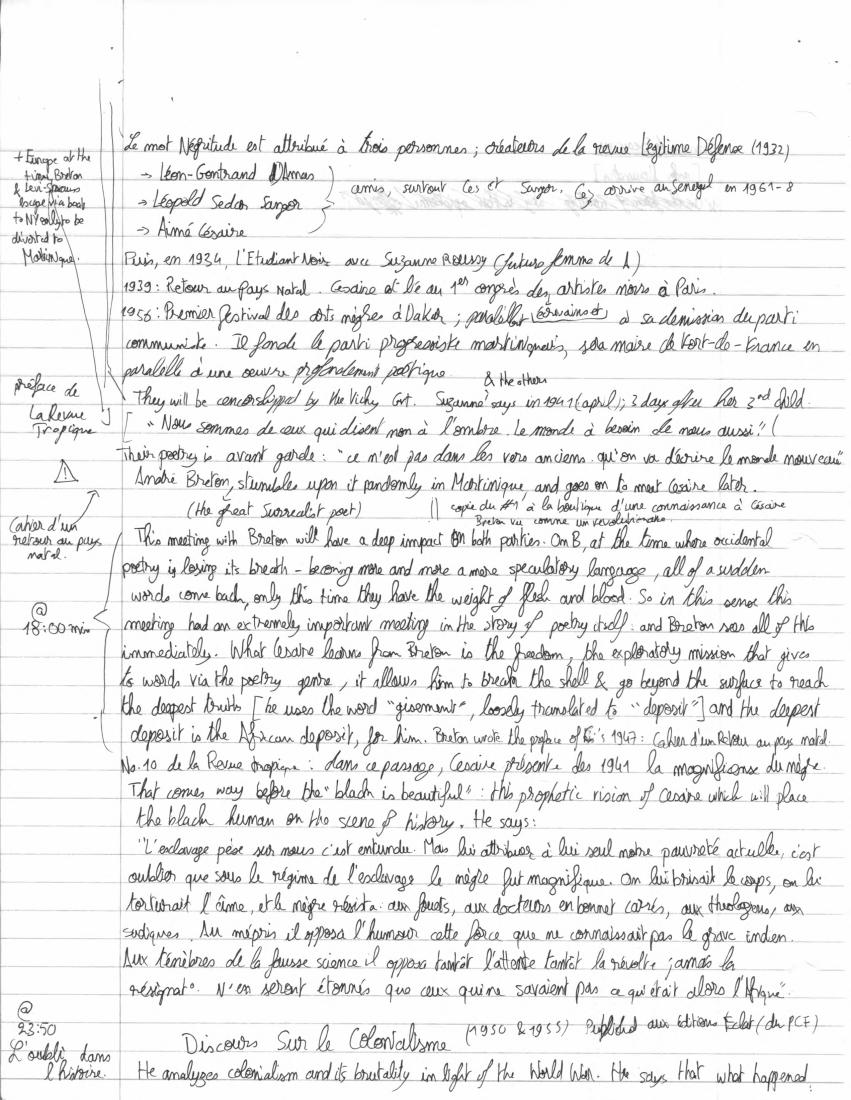 Le mot Négritude est attribué à trois personnes ; créateurs de la revue Légitime Défense (1932)
+ Europe at the
time, Breton
& Levi-Strauss
escape via boat
to NY only to be
diverted to
Martinique.
→ Léon-Gontrand Damas
→ Léopold Sedar Sangor
→ Aimé Césaire
amis, surtout Ces et Sangor. Ces arrive au Senegal en 1961-8
Puis, en 1934, l'Etudiant Noir avec Suzanne Roussy (future femme de L)
1939: Retour au pays Natal. Cesaire et lé au 1er congrès des artistes noirs à Paris.
1956: Premier festival des arts nègres à Dakar ; parallel (écrivains et) à sa demission du parti
communiste. Il fonde le parti progressiste martiniquais, sera maire de Fort-de-France en
paralelle à une oeuvre profondement poétique.
& the others
They will be cencorshipped by the Vichy Gvt. Suzanne says in 1941 (april); 3 days after her 3nd child.
préface de
La Revue
Tropique
[ "Nous sommes de ceux qui disent non à l'ombre. Le monde à besoin de nous aussi." (
Their poetry is avant garde : "ce n'est pas dans les vers anciens qu'on va d'écrire le monde nouveau"
André Breton, stumbles upon it randomly in Martinique, and goes on to meet Cesaire later.
(the great Surrealist poet)
|| copie du #1 à la boutique d'une connaissance à Césaire
Breton vu comme un révolutionnaire.
Cahier d'un
retour au pays
natal.
This meeting with Breton will have a deep impact on both parties. On B, at the time where occidental
poetry is losing its breath - becoming more and more a mere speculatory language, all of a sudden
words come back, only this time they have the weight of flesh and blood. So in this sense this
@
18:00 min
meeting had an extremely important meeting in the story of poetry itself : and Breton sees all of this
immediately. What Cesaire learns from Breton is the freedom, the exploratory mission that gives
to words via the poetry genre, it allows him to break the shell & go beyond the surface to reach
the deepest truths [he uses the word "gisement", loosely translated to "deposit"] and the deepest
deposit is the African deposit, for him. Breton wrote the preface of 's 1947: Cahier d'un Retour au pays natal.
No. 10 de la Revue tropique : dans ce passage, Cesaire présente des 1941 la magnificense du nègre.
That comes way before the "black is beautiful" : this prophetic vision of Cesaire which will place
the black human on the scene of history. He says:
"L'esclavage pèse sur nous c'est entundu. Mais lui attribuer à lui seul notre pauvreté actuelle, c'est
oublier que sous le régime de l'esclavage le nègre fut magnifique. On lui brisait le corps, on lui
torturait l'âme, et le nègre résista : aux fouets, aux docteurs en bonnet carrés, aux theologiens, aux
sadiques. Au mépris il opposa l'humour cette force que ne connaissait pas le grave indien.
Aux ténèbres de la fausse science il opposa tantôt l'attente tantôt la révolte ; jamais la
résignat°. N'en seront étonnés que ceux qui ne savaient pas ce qu'était alors l'Afrique".
@
23:50
L'oubli dans
l'histoire.
Discours Sur le Colonialisme (1950 & 1955) Published aux éditions Eclat (du PCF)
He analyzes colonialism and its brutality in light of the World War. He says that what happened